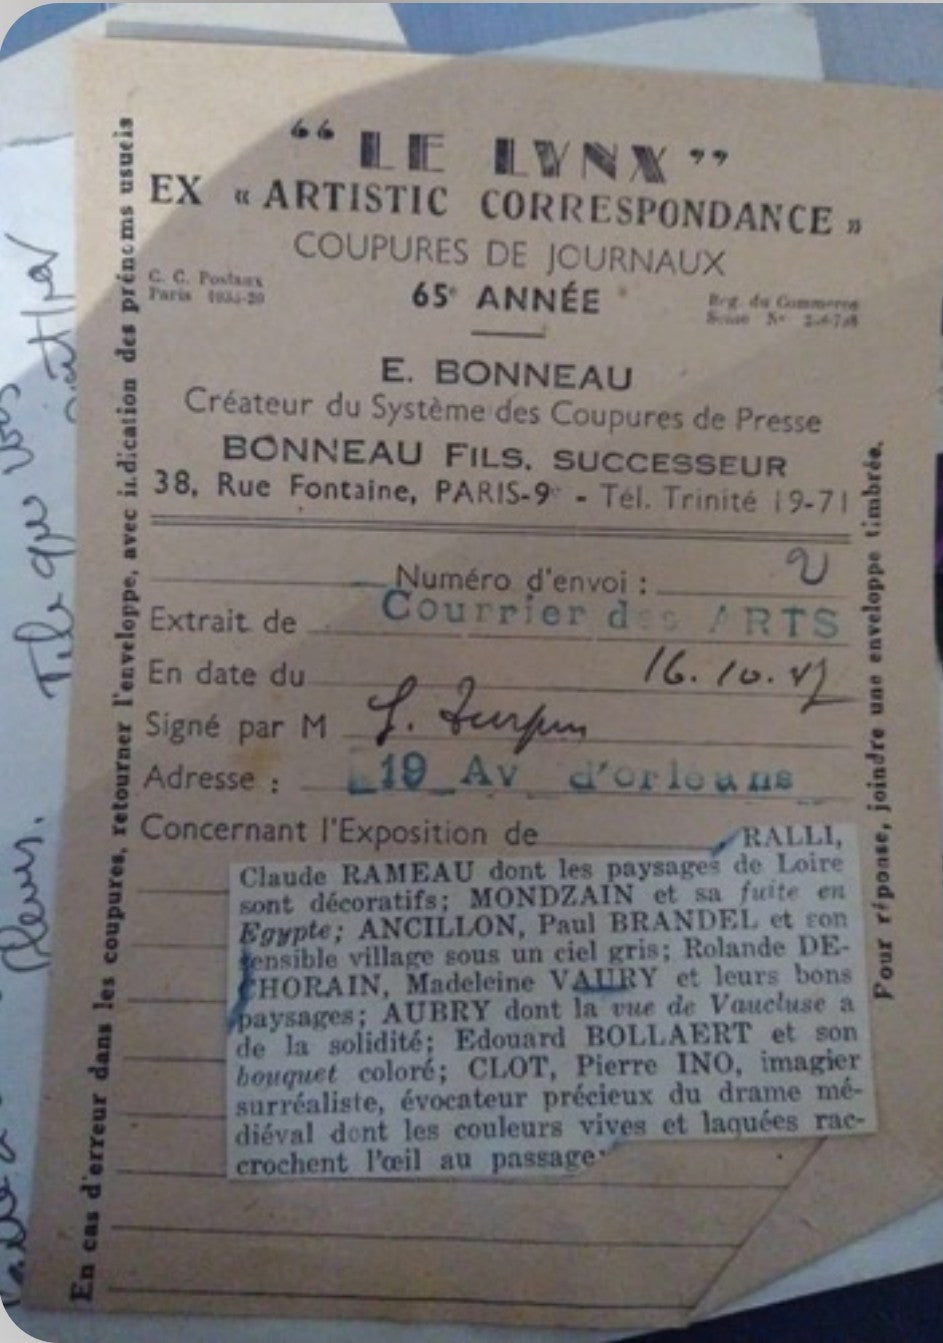 “ LE LYNX ”
EX « ARTISTIC CORRESPONDANCE »
COUPURES DE JOURNAUX
C. C. Postaux
Paris
65e ANNÉE
Reg. du Commerce
Seine No
E. BONNEAU
Créateur du Système des Coupures de Presse
BONNEAU FILS, SUCCESSEUR
38, Rue Fontaine, PARIS-9e - Tél. Trinité 19-71
Numéro d'envoi : 2
Extrait de Courrier des ARTS
En date du 16.10.47
Signé par M
Adresse : 19 Av d'orleans
Concernant l'Exposition de
RALLI,
Claude RAMEAU dont les paysages de Loire
sont décoratifs; MONDZAIN et sa fuite en
Egypte; ANCILLON, Paul BRANDEL et son
sensible village sous un ciel gris; Rolande DE-
CHORAIN, Madeleine VAURY et leurs bons
paysages; AUBRY dont la vue de Vaucluse a
de la solidité; Edouard BOLLAERT et son
bouquet coloré; CLOT, Pierre INO, imagier
surréaliste, évocateur précieux du drame mé-
diéval dont les couleurs vives et laquées rac-
crochent l'œil au passage
En cas d'erreur dans les coupures, retourner l'enveloppe, avec indication des prénoms usuels
Pour réponse, joindre une enveloppe timbrée.